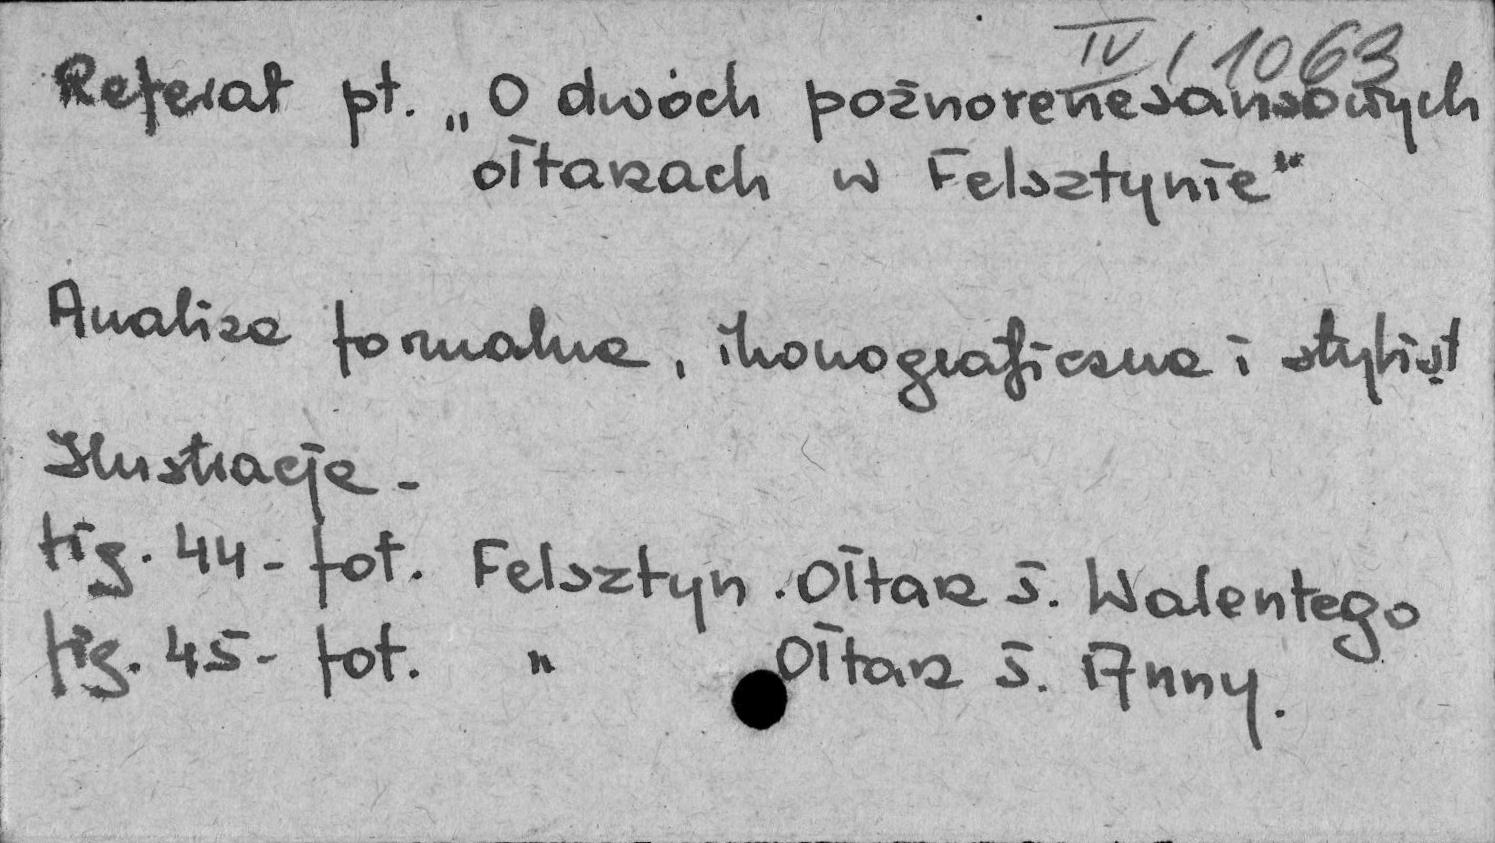 IV / 1063
Referat pt. „O dwóch poźnorenesansowych
ołtarzach w Felsztynie"
Analiza formalna, ikonograficzna i stylist
Ilustracje -
fig. 44 - fot. Felsztyn. Ołtarz ś. Walentego
fig. 45 - fot. " Ołtarz ś. Anny.